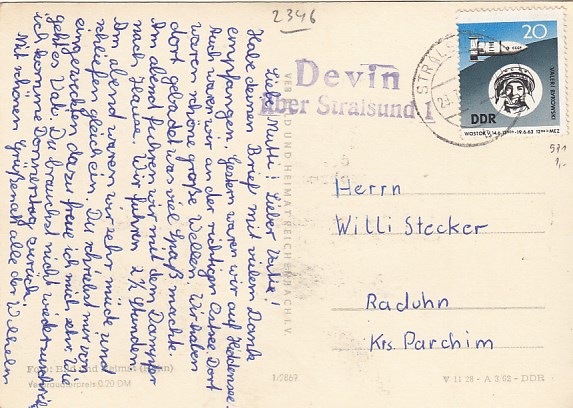 2346
Liebe Mutti! Lieber Vati!
Habe deinen Brief mit vielem Dank
empfangen. Gestern waren wir auf Hiddensee.
Auch waren wir an der richtigen Ostsee. Dort
waren schöne große Wellen. Wir haben
dort gebadet was viel Spaß machte.
Am abend fuhren wir mit dem Dampfer
nach Hause. Wir fuhren 2½ Stunden
Am abend waren wir sehr müde und
schliefen gleich ein. Du schreibst mir von
eingeweckten dazu freue ich mich sehr. Wie
geht es Vati. Du brauchst nicht
ich komme Donnerstag zurück.
Mit schönen Grüßen an alle der Wilhelm
Devin
über Stralsund 1
STRALS
20
VALERI BYKOWSKI
DDR
WOSTOK V 14.6.
19.6.63
MEZ
Herrn
Willi Stecker
Raduhn
Krs. Parchim
VERLAG BILD UND HEIMAT REICHENBACH I. V.
Foto: Bild und Heimat
Verbraucherpreis 0,20 DM
V 11 28 - A 2/62 - DDR